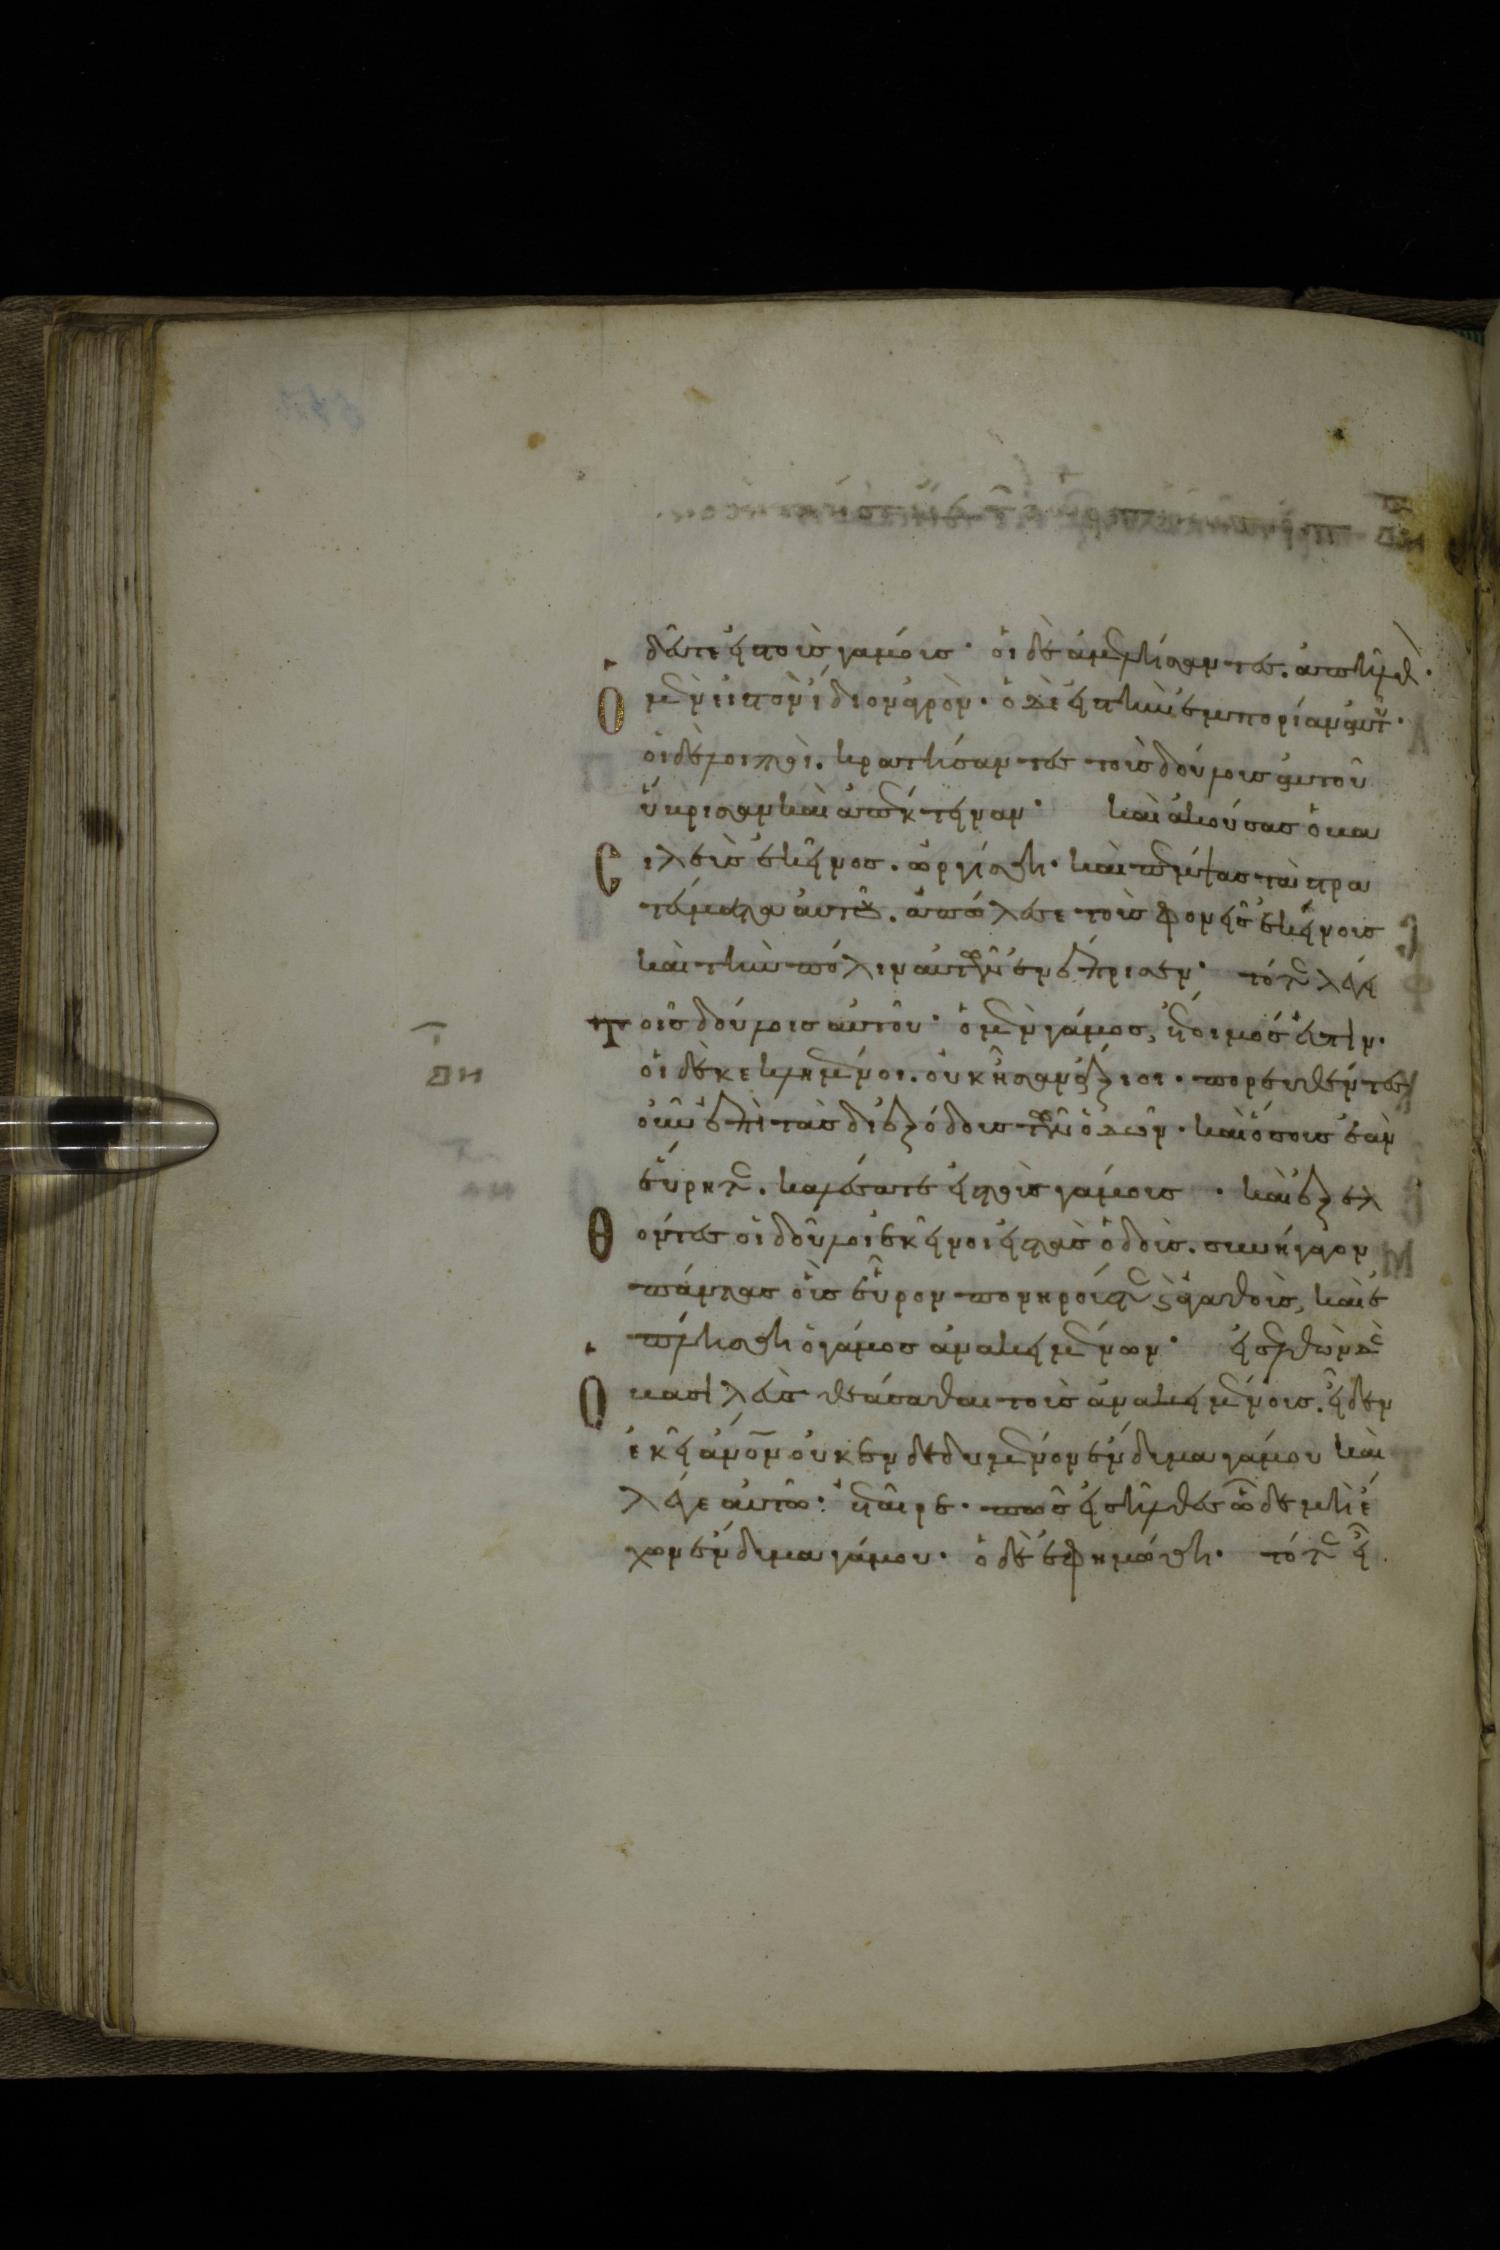 δεῦτε εἰς τοὺς γάμους· οἱ δὲ ἀμελήσαντες. ἀπῆλθον·
Ὁ μὲν εἰς τὸν ἴδιον ἀγρὸν· ὁ δὲ εἰς τὴν ἐμπορίαν αὐτοῦ·
οἱ δὲ λοιποὶ. κρατήσαντες τοὺς δούλους αὐτοῦ
ὕβρισαν καὶ ἀπέκτειναν· καὶ ἀκούσας ὁ βα
σιλεὺς ἐκεῖνος. ὠργίσθη· καὶ πέμψας τὰ στρα
τεύματα αὐτοῦ. ἀπώλεσε τοὺς φονεῖς ἐκείνους
καὶ τὴν πόλιν αὐτῶν ἐνέπρησεν· τότε λέγει
τοῖς δούλοις αὐτοῦ· ὁ μὲν γάμος, ἕτοιμός ἐστιν·
οἱ δὲ κεκλημένοι. οὐκ ἦσαν ἄξιοι· πορευθέντες
οὖν ἐπὶ τὰς διεξόδους τῶν ὁδῶν· καὶ ὅσους ἐὰν
εὕρητε. καλέσατε εἰς τοὺς γάμους· καὶ ἐξελ
θόντες οἱ δοῦλοι ἐκεῖνοι εἰς τὰς ὁδοὺς. συνήγαγον
πάντας οὓς εὗρον πονηρούς τε καὶ ἀγαθοὺς, καὶ ἐ
πλήσθη ὁ γάμος ἀνακειμένων· εἰσελθὼν δὲ
Ὁ βασιλεὺς θεάσασθαι τοὺς ἀνακειμένους. εἶδεν
ἐκεῖ ἄνον οὐκ ἐνδεδυμένον ἔνδυμα γάμου καὶ
λέγει αὐτῷ· ἑταῖρε· πῶς εἰσῆλθες ὧδε μὴ ἔ
χων ἔνδυμα γάμου· ὁ δὲ ἐφιμώθη· τότε εἶ